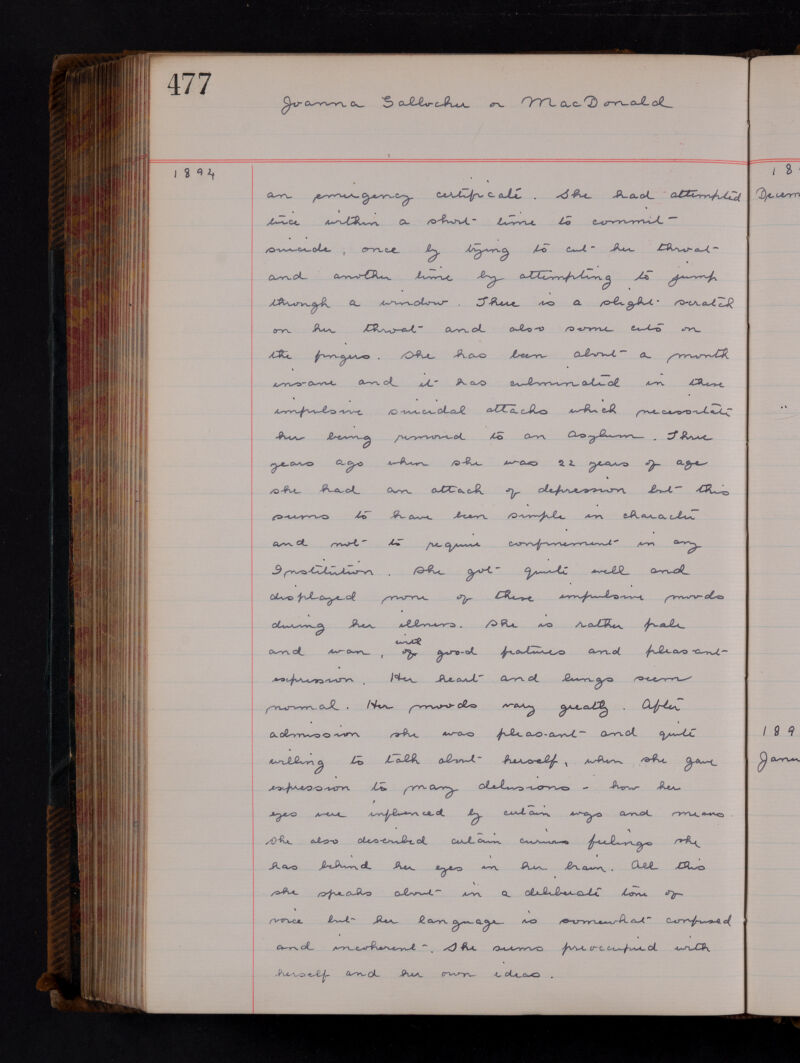 477
Joanna Gallocher or MacDonald
1894
an emergency certificate. She had attempted
twice within a short time to commit
suicide, once by trying to cut her throat
and another time by attempting to jump
through a window. There is a slight scratch
on her throat and also some cuts on
the fingers. She has been about a month
insane and it has culminated in these
impulsive suicidal attacks which necessitate
her being removed to an asylum. Three
years ago when she was 22 years of age
she had an attack of depression but this
seems to have been simple in character
and not to require confinement in any
Institution. She got quite well and
displayed none of these impulsive moods
during her illness. She is rather pale
and wan, with good features and pleasant
expression. Her heart and lungs seem
normal. Her moods vary greatly. After
admission she was pleasant and quite
willing to talk about herself, when she gave
expression to many delusions - how her
eyes were influenced by certain ways and means.
She also described certain curious feelings she
has behind her eyes in her brain. All this
she speaks about in a deliberate tone of
voice but her language is somewhat confused
and incoherent. She seems preoccupied with
herself and her own ideas.
18
Decem
189
Janu